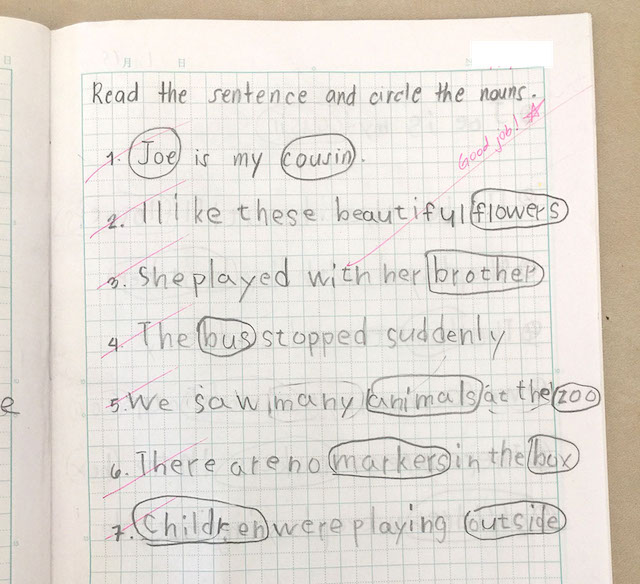 日
月
日
Read the sentence and circle the nouns.
Good job!
1. Joe is my cousin.
2. I like these beautiful flowers
3. She played with her brother
4. The bus stopped suddenly
5. We saw many animals at the zoo
e
6. There are no markers in the box
7. Children were playing outside